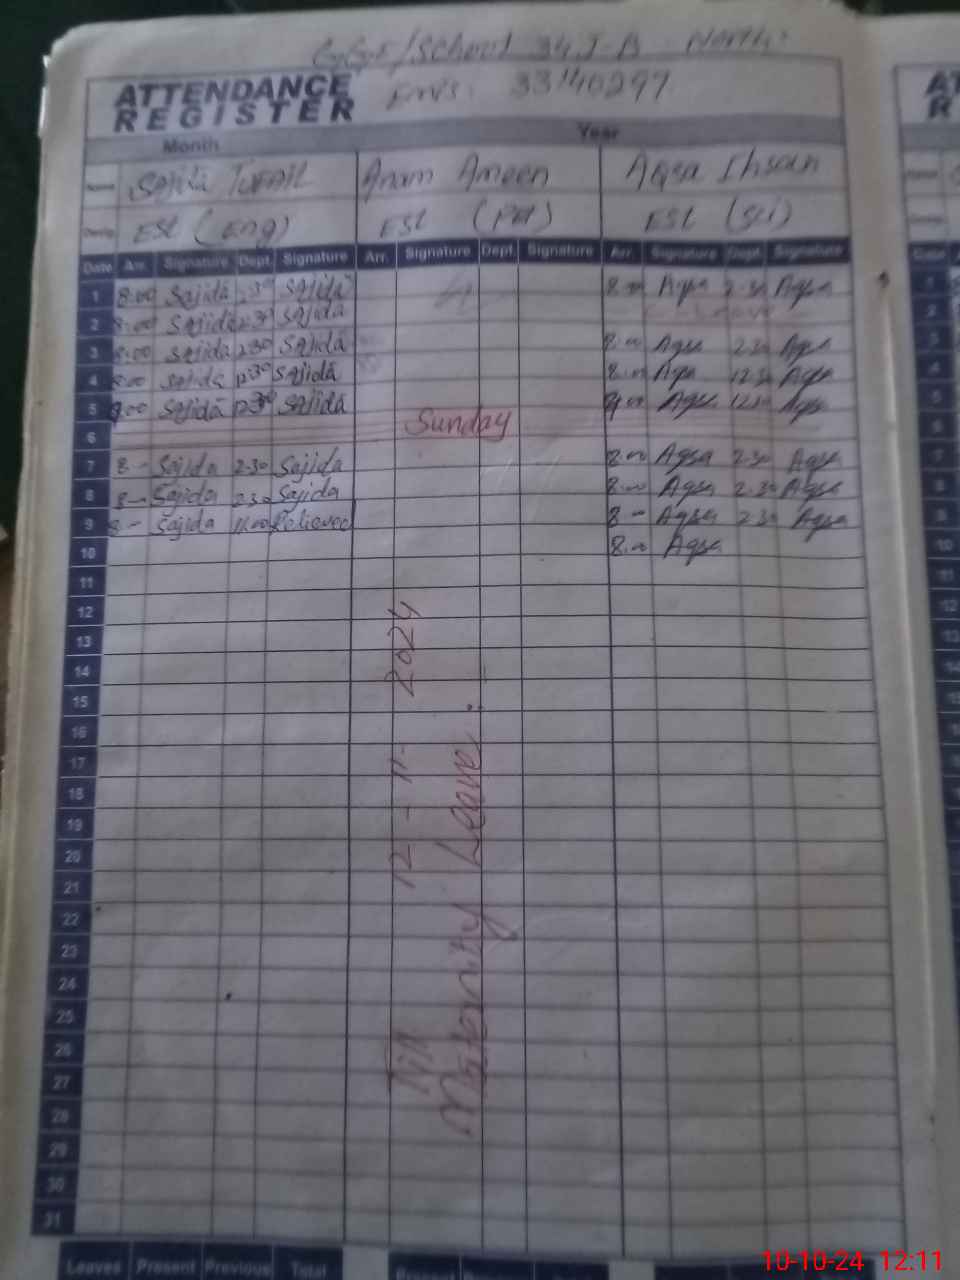 School 34 J-B North
ATTENDANCE
REGISTER
Emis: 33140297
Month Year
Name Sajida Tufail Anam Ameen Aqsa Ihsan
Desig EST (Eng) EST EST (Sci)
Date Arr. Signature Dept. Signature Arr. Signature Dept. Signature Arr. Signature Dept. Signature
1 8:00 Sajida 2:30 Sajida 8:00 Aqsa 2:30 Aqsa
2 8:00 Sajida 2:30 Sajida Leave
3 8:00 Sajida 2:30 Sajida 8:00 Aqsa 2:30 Aqsa
4 8:00 Sajida 12:30 Sajida 8:00 Aqsa 12:30 Aqsa
5 9:00 Sajida 12:30 Sajida 9:00 Aqsa 12:30 Aqsa
6 Sunday
7 8- Sajida 2-30 Sajida 8:00 Aqsa 2-30 Aqsa
8 8- Sajida 2-30 Sajida 8:00 Aqsa 2-30 Aqsa
9 8- Sajida 11:00 Relieved 8- Aqsa 2-30 Aqsa
10 8:00 Aqsa
11
12
13
14
15
16
17
18
19
20
21
22
23
24
25
26
27
28
29
30
31
Till 12-11-2024
Maternity Leave.
Leaves Present Previous Total Present
10-10-24 12:11